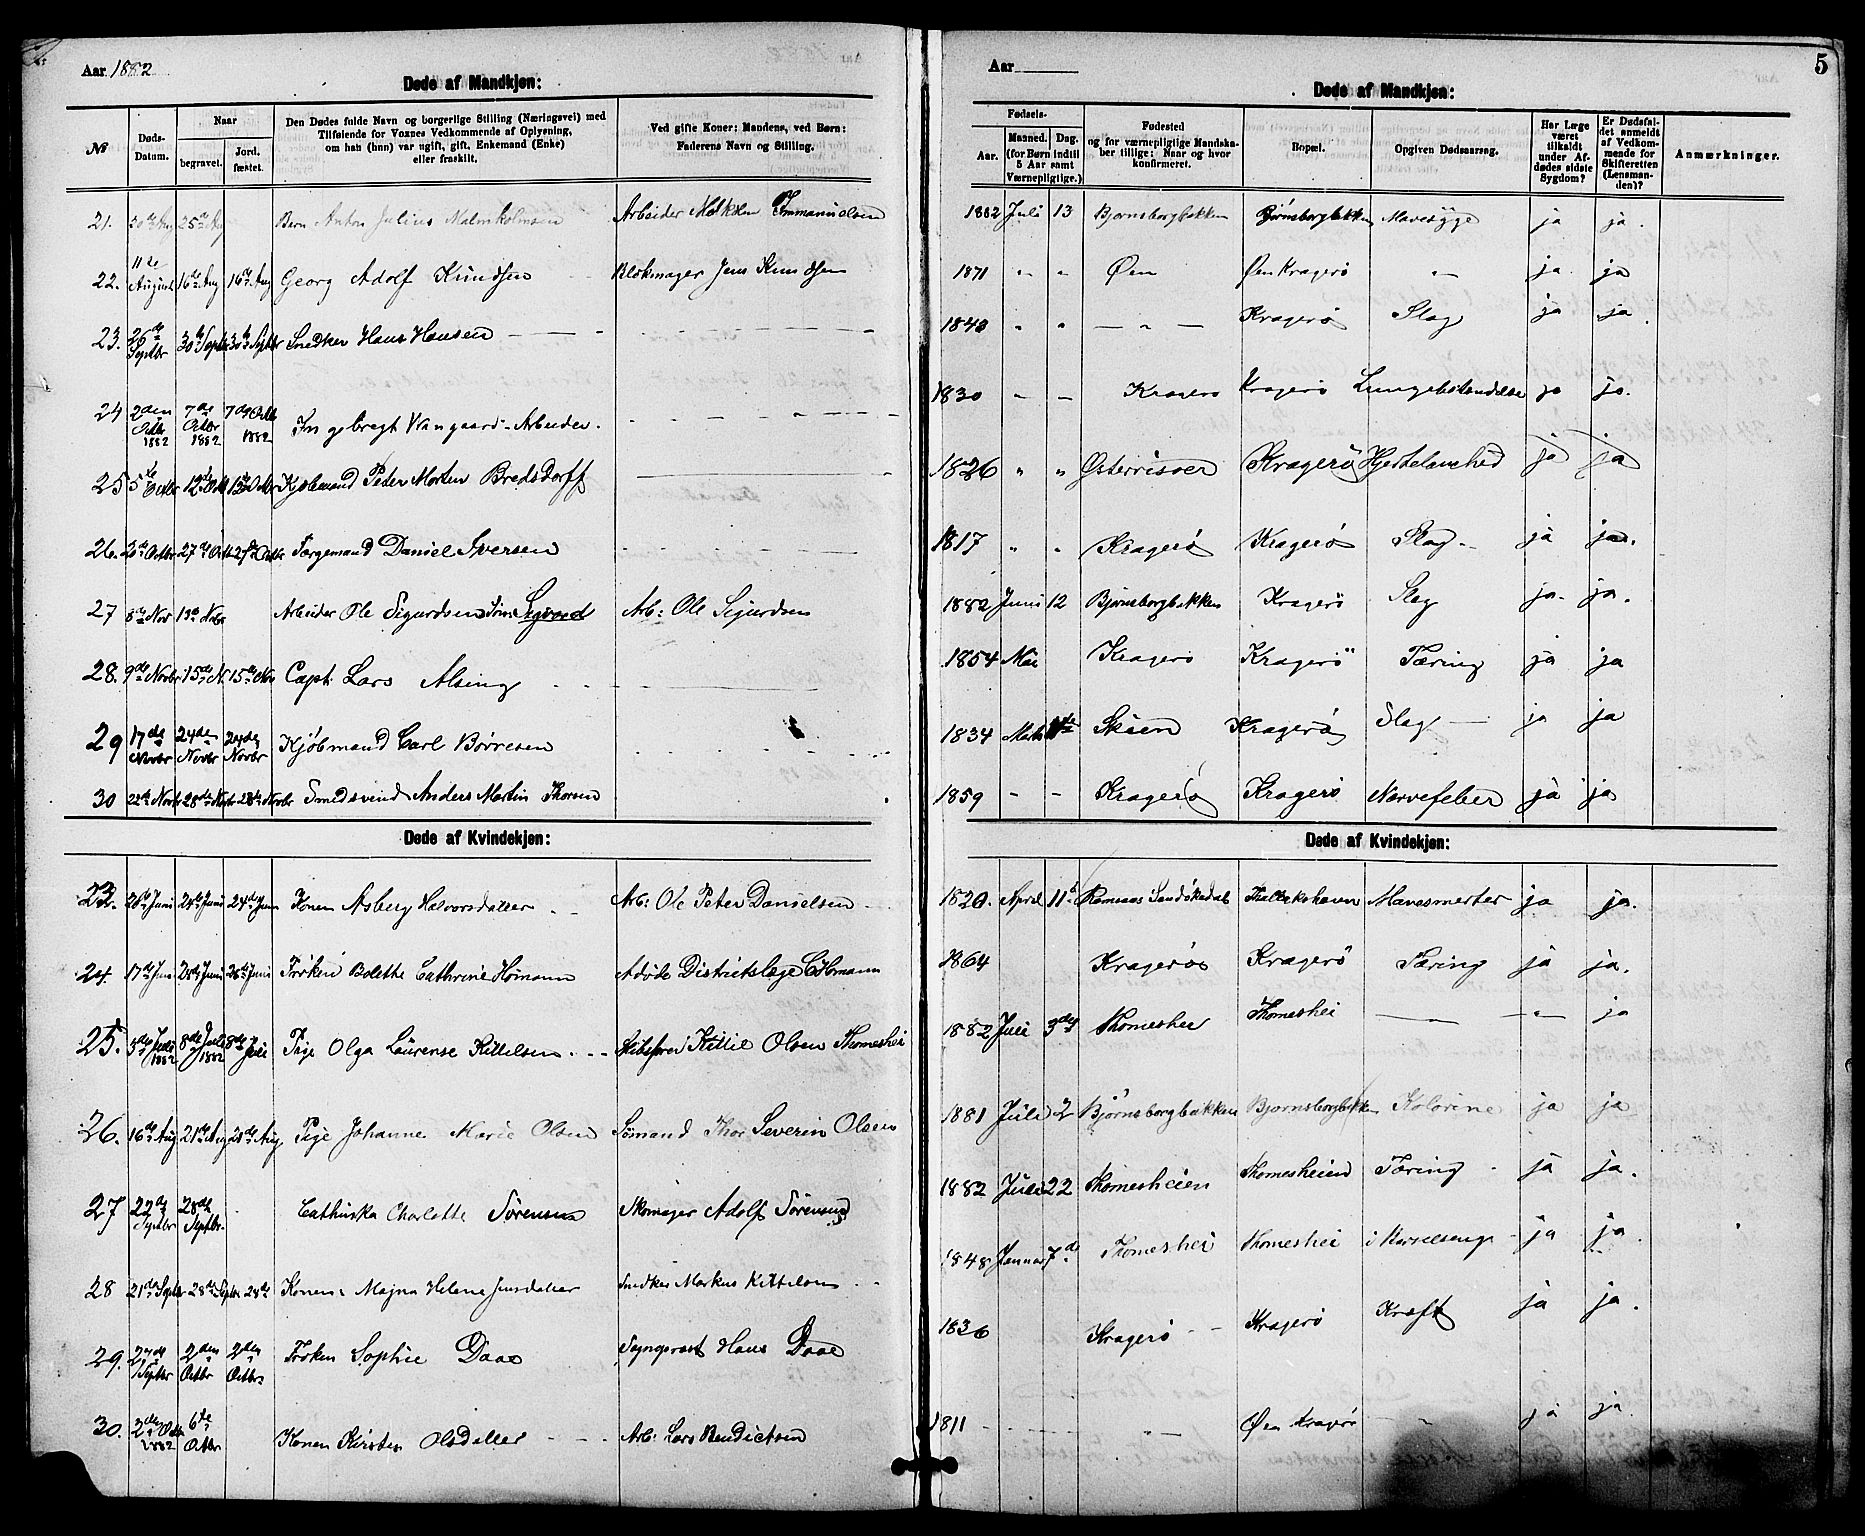 Aar 1882
Døde af Mandkjøn:
№
Døds-Datum.
Naar
begravet.
Jord, fæstet.
Den Dødes fulde Navn og borgerlige Stilling (Næringsvei) med
Tilføiende for Voxnes Vedkommende af Oplysning,
om han (hun) var ugift, gift, Enkemand (Enke)
eller fraskilt.
Ved gifte Koner: Mandens, ved Børn:
Faderens Navn og Stilling.
21. 25de Aug Barn Anton Julius Malmholmsen Arbeider Immanuelsen
22. 11te August 16de Aug 16de Aug Georg Adolf Knudsen Blokmager Jens Knudsen
23. 26de Septbr 30te Septbr 30te Septbr Snedker Hans Hansen
24 2den Octbr 1882 7de Octbr 1882 7de Octb 1882 Ingebregt Vangaard - Arbeider.
25 5te Octbr 12te Kjøbmand Peder Morten Bredsdorff
26. 20de Octbr 27de Octb 27de Octbr Færgemand Daniel Iversen
27 8de Nov 13de Nvbr Arbeider Ole Sigurdsens Søn Sigvard Arb: Ole Sigurdsen
28. 9de Novbr 15de N. 15de Nov Capt. Lars Alsing
29 17de Novbr 24den Novbr 24de Novbr Kjøbmand Carl Børresen
30 22de Novbr 28de Novbr 28de Novbr Smedsvend Anders Martin Thorsen
Døde af Kvindekjøn:
23. 20de Juni 24de Juni 24de Juni Konen Asberg Halvorsdatter Arb: Ole Peter Danielsen
24. 17de Juni Juni Juni Frøken Bolette Cathrine Homann Avdøde Districtslæge C. Homann
25. 5te Juli 1882 8de Juli 1882 8de Juli Pige Olga Laurense Kittelsen Kittil Olsen Thomeshei
26. 16de Aug 21de Aug 21de Aug Pige Johanne Marie Olsen Sømand Thor Severin Olsen
27 22de Septbr 28de Septbr. Cathinka Charlotte Sørensen Skomager Adolf Sørensen
28 21de Septbr 28de Septbr 28de Konen Majna Helene Jensdatter Snedker Markus Kittelsen
29. 27de Septbr 2den Octbr 2den Octbr Frøken Sophie Daae Sogneprest Hans Daae
30. 2den Octb 1882 6te Octbr Konen Kirsten Olsdatter Arb: Lars Bendictsen
5
Aar
Døde af Mandkjøn:
Fødsels-
Aar.
Maaned. Dag.
(for Børn indtil 5 Aar samt Værnepligtige.)
Fødested
og for værnepligtige Mandskaber tillige: Naar og hvor konfirmeret.
Bopæl.
Opgiven Dødsaarsag.
Har Læge været tilkaldt under Afdødes sidste Sygdom?
Er Dødsfaldet anmeldt af Vedkommende for Skifteretten (Lensmanden)?
Anmærkninger.
1882 Juli 13 Bjørnsborgbakken Bjørnsborgbakken Mavesyge ja ja.
1871 " " Øen Øen Kragerø — " — ja ja
1840 " " — " — Kragerø Slag ja ja
1830 Kragerø Kragerø Lungebetændelse ja ja.
1826 " " Østerrisøer Kragerø Hjertelamhed ja ja
1817 " " Kragerø Kragerø Slag ja ja.
1882 Juni 12 Bjørnsborgbakken Kragerø Slag ja ja.
1854 Mai Kragerø Kragerø Tæring ja ja
1834 Marts Skien Kragerø Slag ja ja
1859 Kragerø Kragerø Nervefeber ja ja
Døde af Kvindekjøn:
1820. April 11 Sandøkedal Thallakshavn Mavesmerter ja ja.
1864 Kragerø Kragerø Tæring ja ja.
1882 Juli 3de Thomeshei Thomeshei — " — ja
1881 Juli 2 Bjørnsborgbakken Bjørnsborgbakken Kolorine ja ja
1882 Juli 22 Thomesheien Thomesheien Tæring ja ja.
1848 Januar 7de Thomeshei Thomeshei i Barselseng ja ja.
1836 Kragerø Kragerø Kræft ja ja.
1811 — " — Øen Kragerø " ja ja.